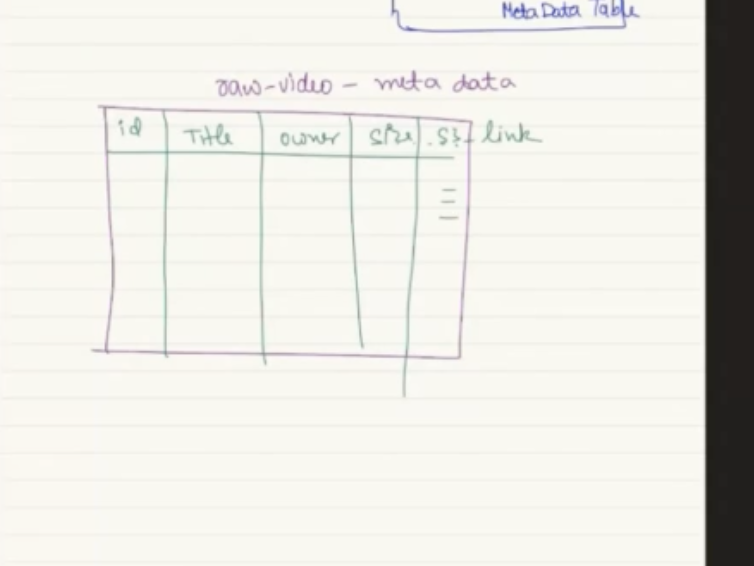 MetaData Table
raw-video - meta data
id Title owner size S3-link